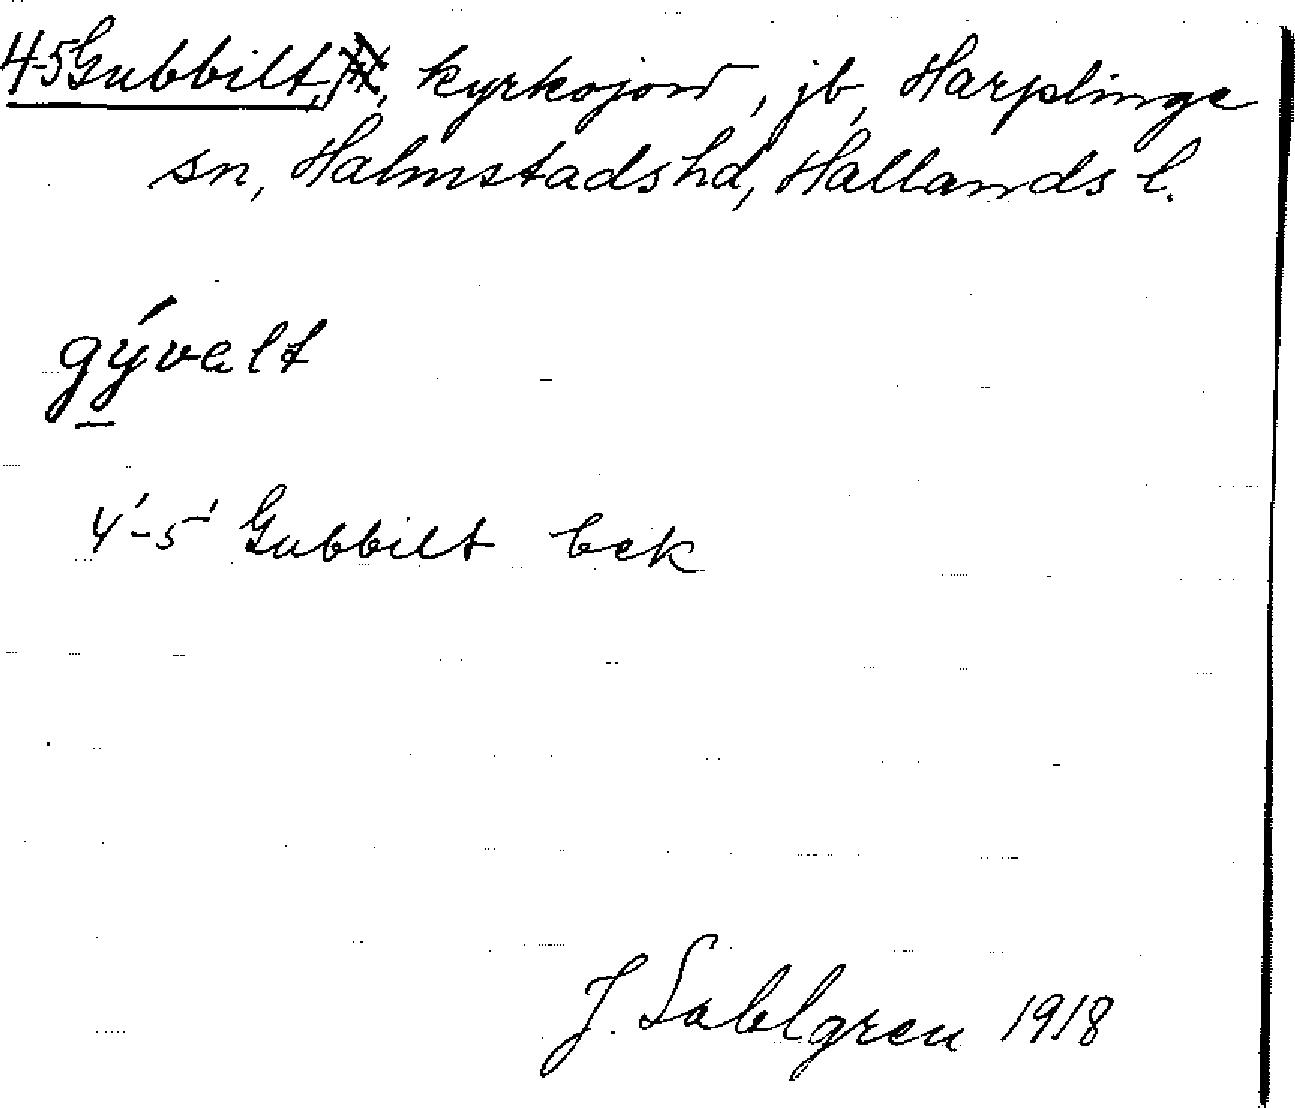 4-5 Gubbilt, kyrkojord, jb, Harplinge
sn, Halmstads hd, Hallands l.
gývalt
4'-5' Gubbilt bek
J. Sahlgren 1918